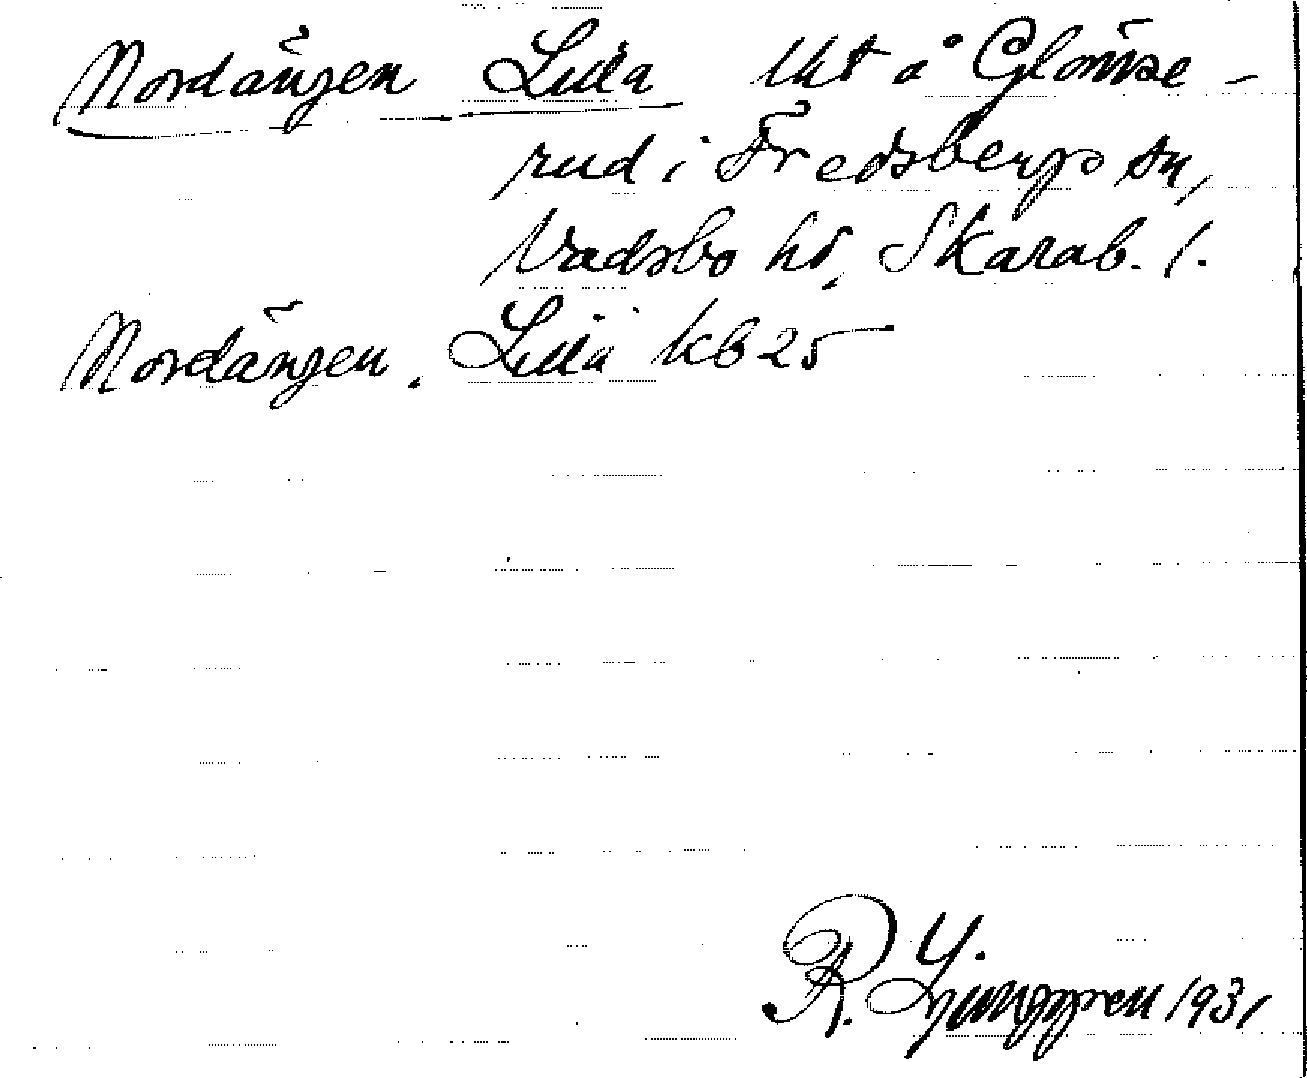 Nordängen Lilla lht å Glömse-
rud i Fredsbergs sn,
Vadsbo hd, Skarab. l.
Nordängen, Lilla kb 25
R. Y.
Ljunggren 1931